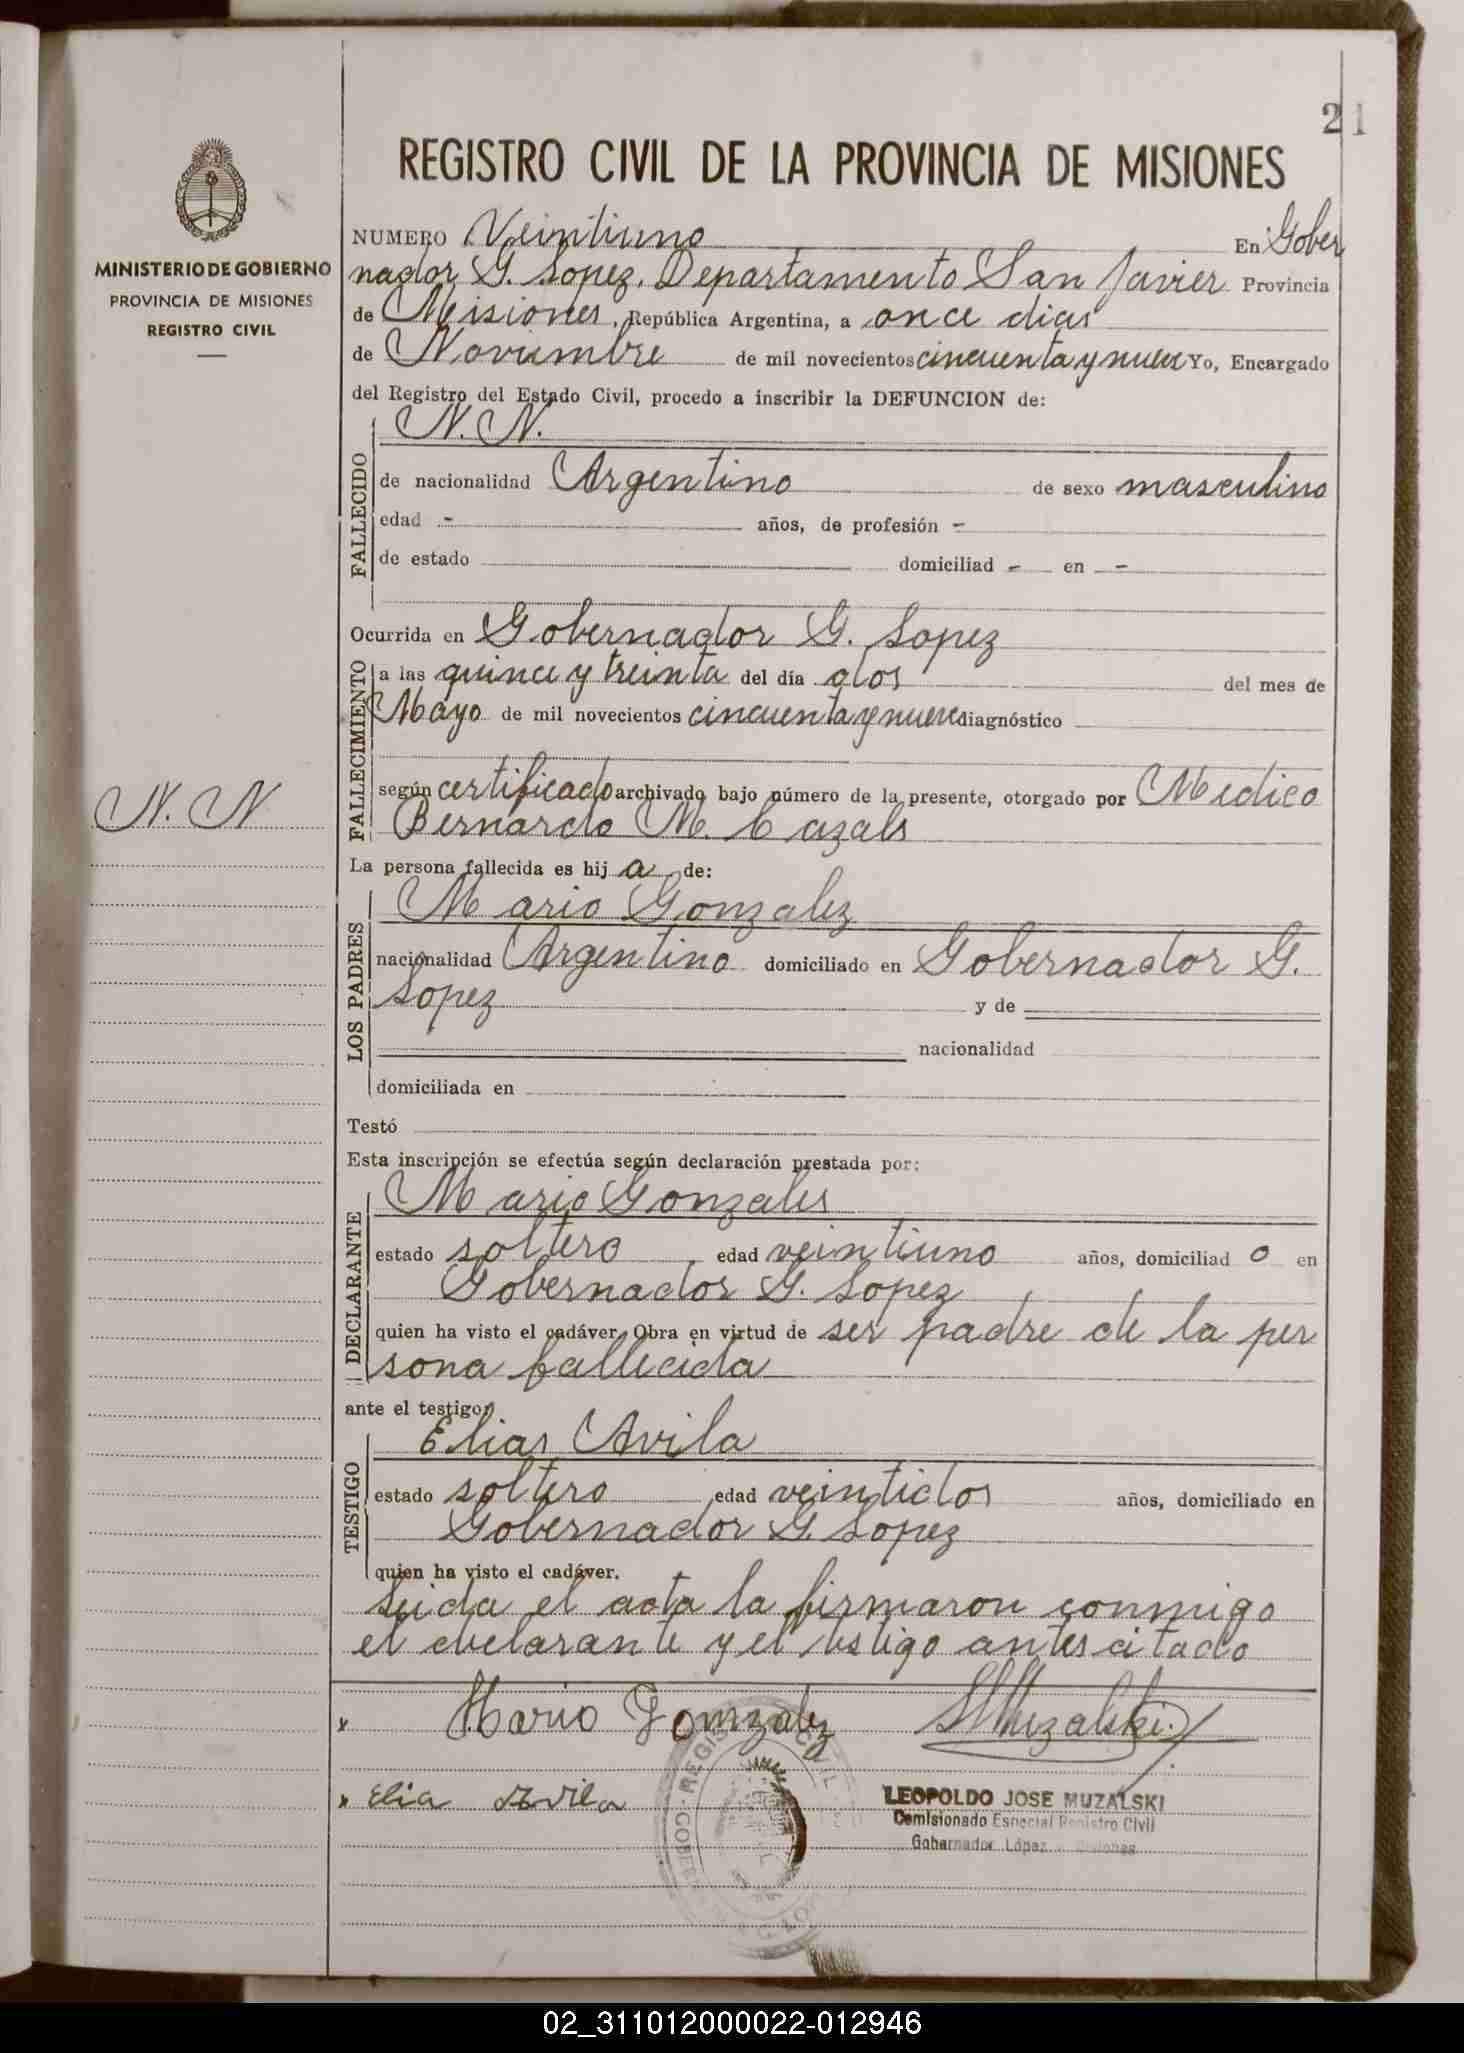 21
REGISTRO CIVIL DE LA PROVINCIA DE MISIONES
MINISTERIO DE GOBIERNO
PROVINCIA DE MISIONES
REGISTRO CIVIL
NUMERO Veintiuno En Gober
nador G. Lopez, Departamento San Javier Provincia
de Misiones, República Argentina, a once dias
de Noviembre de mil novecientos cincuenta y nueve Yo, Encargado
del Registro del Estado Civil, procedo a inscribir la DEFUNCION de:
FALLECIDO
N. N.
de nacionalidad Argentino de sexo masculino
edad - años, de profesión -
de estado domiciliad - en -
Ocurrida en Gobernador G. Lopez
FALLECIMIENTO
a las quince y treinta del día dos del mes de
Mayo de mil novecientos cincuenta y nueve diagnóstico
según certificado archivado bajo número de la presente, otorgado por Medico
Bernardo M. Cazals
N. N
La persona fallecida es hij a de:
LOS PADRES
Mario Gonzalez
nacionalidad Argentino domiciliado en Gobernador G.
Lopez y de
nacionalidad
domiciliada en
Testó
Esta inscripción se efectúa según declaración prestada por:
DECLARANTE
Mario Gonzales
estado soltero, edad veintiuno años, domiciliad o en
Gobernador G. Lopez
quien ha visto el cadáver. Obra en virtud de ser padre de la per
sona fallecida
ante el testigo:
TESTIGO
Elias Avila
estado soltero, edad veintidos años, domiciliado en
Gobernador G. Lopez
quien ha visto el cadáver.
Leida el acta la firmaron conmigo
el declarante y el testigo antes citado
x Mario Gonzalez Muzalski
x Elia Avila
LEOPOLDO JOSE MUZALSKI
Comisionado Especial Registro Civil
Gobernador López - Misiones
REGISTRO CIVIL
02_311012000022-012946